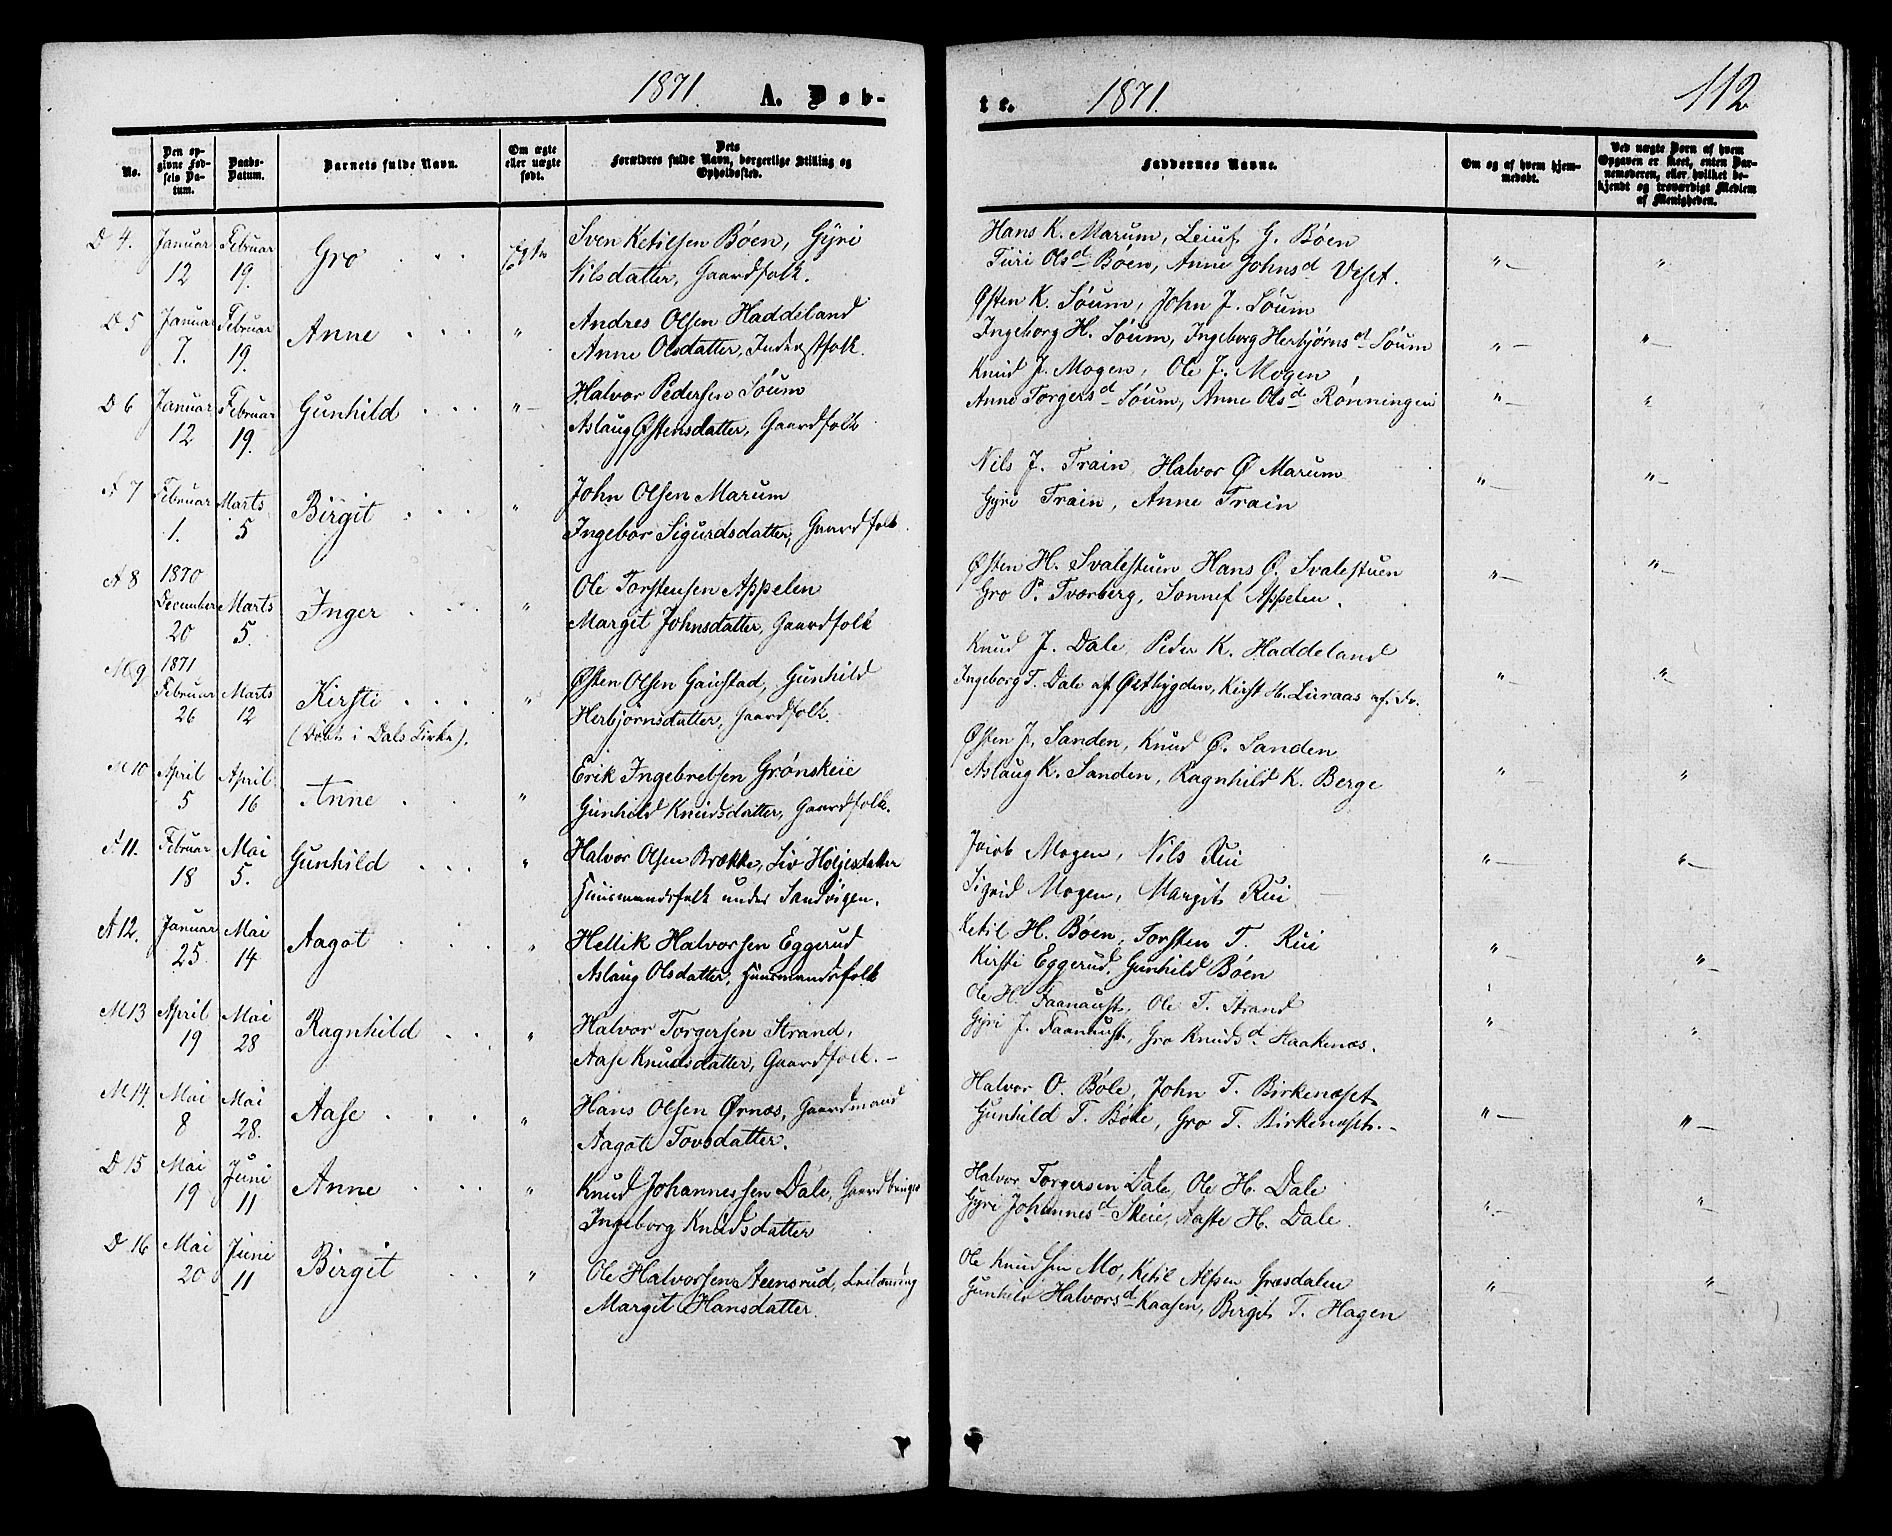 1871. A. Døb-
No.
Den opgivne Fødsels Datum.
Daabs-Datum.
Barnets fulde Navn.
Om ægte eller uægte født.
Dets Forældres fulde Navn, borgerlige Stilling og Opholdssted.
D 4. Januar 12 Februar 19. Gro . . . ægte Sven Ketilsen Bøen, Gyri
Nilsdatter, Gaardfolk.
D 5 Januar 7. Februar 19. Anne . . . " Andres Olsen Haddeland
Anne Olsdatter, Inderstfolk.
D 6 Januar 12 Februar 19. Gunhild . . . "– Halvor Pedersen Søum
Aslaug Østensdatter, Gaardfolk
F 7 Februar 1. Marts 5 Birgit . . . " John Olsen Marum
Ingebor Sigurdsdatter, Gaardfolk.
A 8 1870 December 20 Marts 5. Inger . . . " Ole Torstensen Appelen
Margit Johnsdatter, Gaardfolk
M 9 1871 Februar 26 Marts 12 Kirsti . . . " Østen Olsen Gaustad, Gunhild
(Døbt i Dals Kirke). Herbjørnsdatter, Gaardfolk.
M 10 April 5 April 16 Anne . . " Erik Ingebretsen Grønskeie
Gunhild Knudsdatter, Gaardfolk.
F. 11. Februar 18 Mai 5. Gunhild . . . " Halvor Olsen Brække, Liv Høljesdatter
Huusmandsfolk under Sandvigen.
A 12. Januar 25 Mai 14 Aagot . . . " Hellik Halvorsen Eggerud
Aslaug Olsdatter, Huusmandsfolk
M 13 April 19 Mai 28 Ragnhild . . " Halvor Torgersen Strand,
Aase Knudsdatter, Gaardfolk. –
M 14. Mai 8 Mai 28. Aase . . . " Hans Olsen Ørnæs, Gaardmand
Aagot Tovsdatter.
D 15 Mai 19 Juni 11 Anne . . . " Knud Johannessen Dale, Gaardbruger
Ingeborg Knudsdatter
D 16 Mai 20 Juni 11 Birgit . . " Ole Halvorsen Steensrud, Leilænding
Margit Hansdatter.
te. 1871. 112
Faddernes Navne.
Om og af hvem hjemmedøbt.
Ved uægte Børn af hvem Opgaven er skeet, enten Barnemoderen, eller hvilket bekjendt og troværdigt Medlem af Menigheden.
Hans K. Marum, Leiuf G. Bøen
Turi Olsd Bøen, Anne Johnsd Veset. "– "
Østen K. Søum, John J. Søum
Ingeborg H. Søum, Ingeborg Herbjørnsd Søum "– "–
Knud J. Mogen, Ole J. Mogen
Anne Torgersd Søum, Anne Olsd Rønningen "– "
Nils J. Train, Halvor Ø Marum
Gyri Train, Anne Train "– "–
Østen H. Svalestuen Hans O. Svalestuen
Gro P. Tværberg, Sonnef Appelen. "– "–
Knud J. Dale, Peder K. Haddeland
Ingeborg T. Dale af Østbygden, Kirst H. Luraas "– "–
Østen J. Sanden, Knud Ø. Sanden
Aslaug K. Sanden, Ragnhild K. Berge "– "
Jacob Mogen, Nils Rui
Sigrid Mogen, Margit Rui "– "–
Ketil H. Bøen, Torsten T. Rui
Kirsti Eggerud, Gunhild Bøen "– "–
Ole H. Faanaust, Ole T. Strand
Gyri J. Faanaust, Gro Knudsd Haakenæs. "– "
Halvor O. Bøle, John T. Birkenæset
Gunhild T. Bøle, Gro T. Birkenæset. – "– "–
Halvor Torgersen Dale, Ole H. Dale
Gyri Johannesd Skeie, Aaste H. Dale. "– "
Ole Knudsen Mo, Ketil Alfsen Græsdalen
Gunhild Halvorsd Kaasen, Bergit T. Hagen " "–